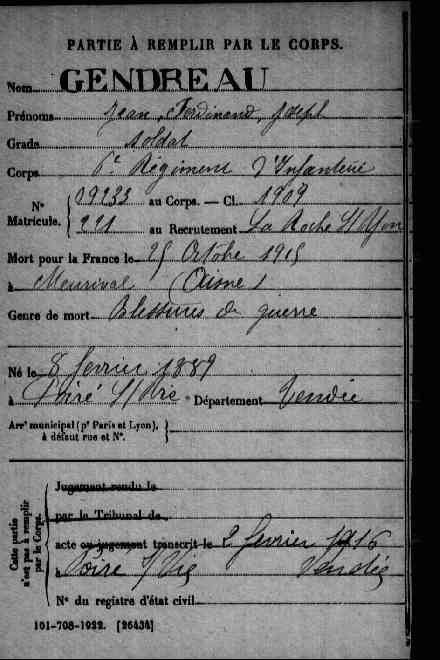 PARTIE À REMPLIR PAR LE CORPS.
Nom GENDREAU
Prénoms Jean, Ferdinand, Joseph
Grade soldat
Corps 6e Régiment d'Infanterie
N° Matricule. 09233 au Corps. — Cl. 1909
221 au Recrutement La Roche S/Yon
Mort pour la France le 25 Octobre 1915
à Meurival (Aisne)
Genre de mort Blessures de guerre
Né le 8 février 1889
à Poiré S/Vie Département Vendée
Arrt municipal (pr Paris et Lyon), à défaut rue et N°.
Cette partie n'est pas à remplir par le Corps.
Jugement rendu le
par le Tribunal de
acte ou jugement transcrit le 2 février 1916
à Poiré S/Vie Vendée
N° du registre d'état civil
101-708-1922. [26434]